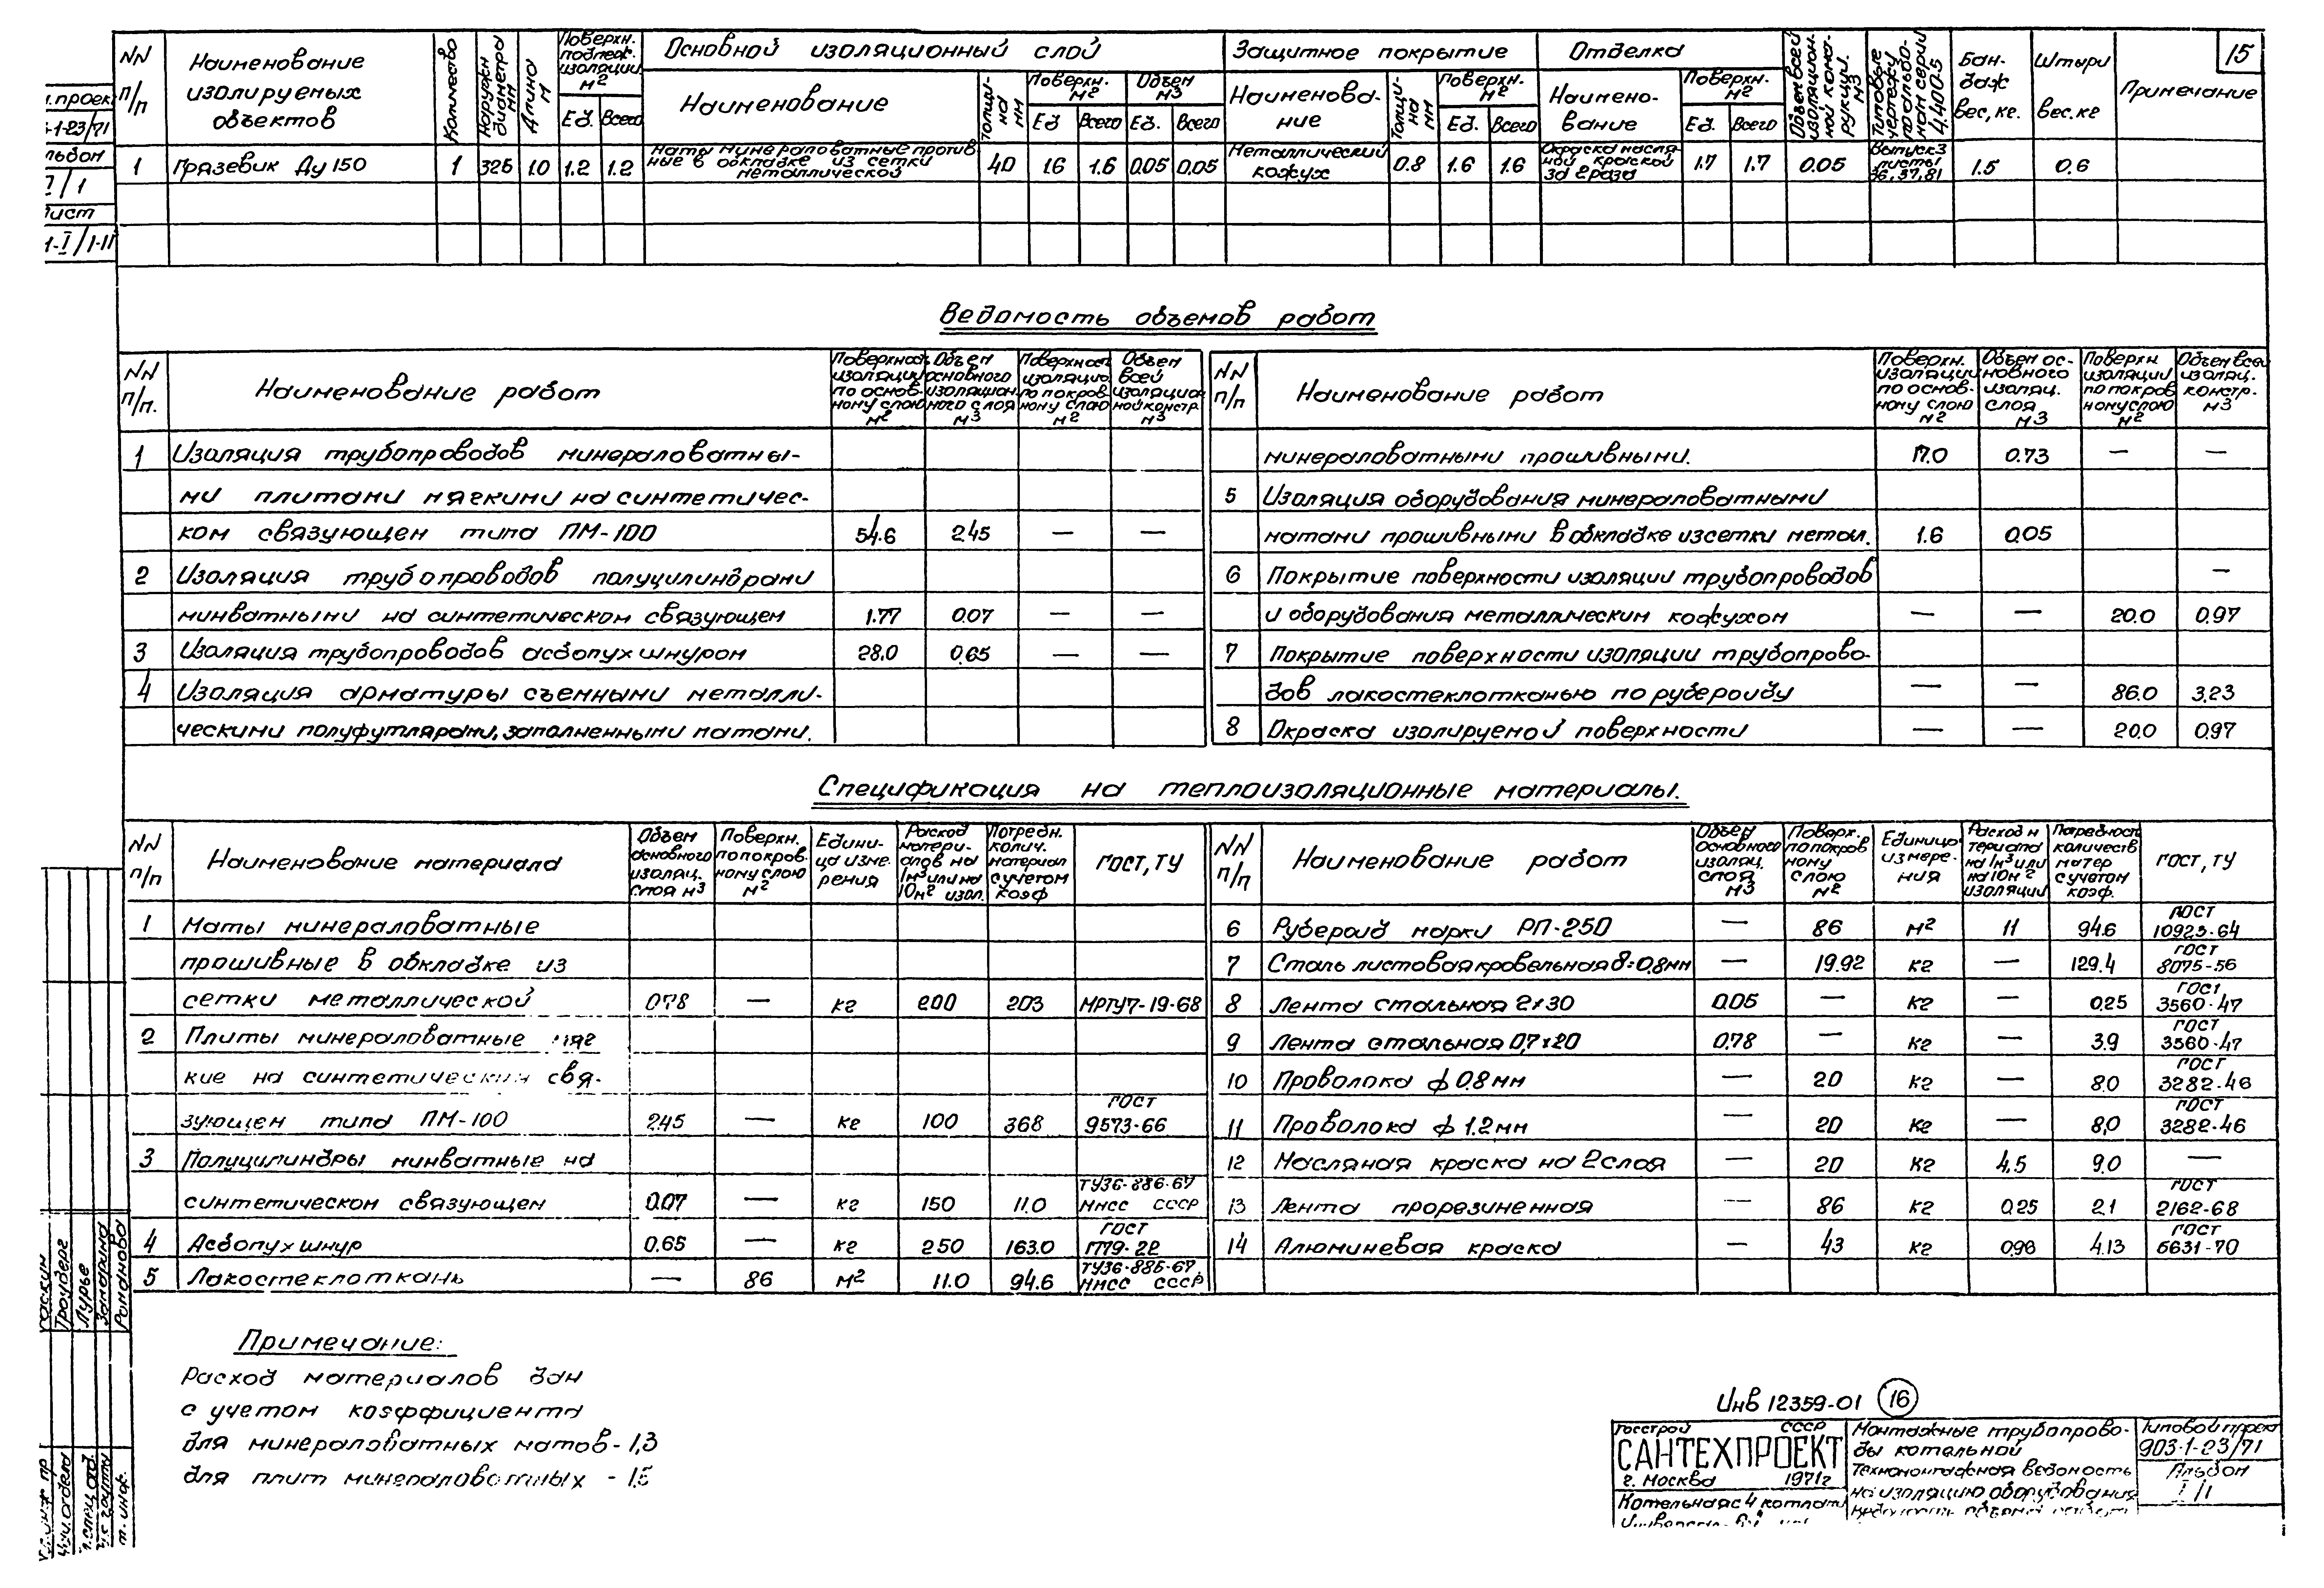 15
NN п/п | Наименование изолируемых объектов | Количество | Наружн диаметры мм | Длина м | Поверхн. подлеж. изоляции м2 | Основной изоляционный слой | Защитное покрытие | Отделка | Объем всей изоляцион-ной конст-рукции. м3 | Типовые чертежи по альбо-мам серии 4.400-5 | Бан-даж вес, кг. | Штыри вес. кг | Примечание
Ед. | Всего | Наименование | Толщи-на мм | Поверхн. м2 | Объем м3 | Наименова-ние | Толщи-на мм | Поверхн. м2 | Наимено-вание | Поверхн. м2
Ед | Всего | Ед. | Всего | Ед. | Всего | Ед. | Всего
1 | Грязевик Ду 150 | 1 | 325 | 1.0 | 1.2 | 1.2 | Маты минераловатные прошив ные в обкладке из сетки металлической | 40 | 1.6 | 1.6 | 0.05 | 0.05 | Металлический кожух | 0.8 | 1.6 | 1.6 | Окраска масля ной краской за 2 раза | 1.7 | 1.7 | 0.05 | Выпуск 3 листы 36, 37, 81 | 1.5 | 0.6
Ведомость объемов работ
NN п/п. | Наименование работ | Поверхност. изоляции по основ-ному слою м2 | Объем основного изоляцион. ного слоя м3 | Поверхност. изоляцио. по покров ному слою м2 | Объем всей изоляцио ной констр. м3
1 | Изоляция трубопроводов минераловатны-
ми плитами мягкими на синтетичес-
ком связующем типа ПМ-100 | 54.6 | 2.45 | — | —
2 | Изоляция трубопроводов полуцилиндрами
минватными на синтетическом связующем | 1.77 | 0.07 | — | —
3 | Изоляция трубопроводов асбопухшнуром | 28.0 | 0.65 | — | —
4 | Изоляция арматуры съемными металли-
ческими полуфутлярами, заполненными матами.
NN п/п | Наименование работ | Поверхн. изоляции по основ-ному слою м2 | Объем ос-новного изоляц. слоя м3 | Поверхн изоляции по покров ному слою м2 | Объем всей изоляц. констр. м3
минераловатными прошивными. | 17.0 | 0.73 | — | —
5 | Изоляция оборудования минераловатными
матами прошивными в обкладке из сетки метал. | 1.6 | 0.05
6 | Покрытие поверхности изоляции трубопроводов | —
и оборудования металлическим кожухом | — | — | 20.0 | 0.97
7 | Покрытие поверхности изоляции трубопрово-
дов лакостеклотканью по рубероиду | — | — | 86.0 | 3.23
8 | Окраска изолируемой поверхности | — | — | 20.0 | 0.97
Спецификация на теплоизоляционные материалы.
NN п/п | Наименование материала | Объем основного изоляц. слоя м3 | Поверхн. по покров. ному слою м2 | Едини-ца изме-рения | Расход матери-алов на 1м3 или на 10м2 изол. | Потребн. колич. материал с учетом коэф | ГОСТ, ТУ
1 | Маты минераловатные
прошивные в обкладке из
сетки металлической | 0.78 | — | кг | 200 | 203 | МРТУ7-19-68
2 | Плиты минераловатные мяг
кие на синтетическим свя-
зующем типа ПМ-100 | 2.45 | — | кг | 100 | 368 | ГОСТ 9573-66
3 | Полуцилиндры минватные на
синтетическом связующем | 0.07 | — | кг | 150 | 11.0 | ТУ36-886-67 ММСС СССР
4 | Асбопухшнур | 0.65 | — | кг | 250 | 163.0 | ГОСТ 1779-22
5 | Лакостеклоткань | — | 86 | м2 | 11.0 | 94.6 | ТУ36-885-67 ММСС СССР
NN п/п | Наименование работ | Объем основного изоляц. слоя м3 | Поверх. по покров ному слою м2 | Единица измере-ния | Расход м териала на 1м3 или на 10м2 изоляции | Потребност количеств матер с учетом коэф. | ГОСТ, ТУ
6 | Рубероид марки РП-250 | — | 86 | м2 | 11 | 94.6 | ГОСТ 10923-64
7 | Сталь листовая кровельная δ=0.8мм | — | 19.92 | кг | — | 129.4 | ГОСТ 8075-56
8 | Лента стальная 2×30 | 0.05 | — | кг | — | 0.25 | ГОСТ 3560-47
9 | Лента стальная 0,7×20 | 0.78 | — | кг | — | 3.9 | ГОСТ 3560-47
10 | Проволока ф 0.8мм | — | 20 | кг | — | 8.0 | ГОСТ 3282-46
11 | Проволока ф 1.2мм | — | 20 | кг | — | 8,0 | ГОСТ 3282-46
12 | Масляная краска на 2 слоя | — | 20 | кг | 4.5 | 9.0 | —
13 | Лента прорезиненная | — | 86 | кг | 0.25 | 2.1 | ГОСТ 2162-68
14 | Алюминевая краска | — | 43 | кг | 0.96 | 4.13 | ГОСТ 5631-70
Примечание:
Расход материалов дан
с учетом коэффициента
для минераловатных матов - 1,3
для плит минераловатных - 1.5
Инв 12359-01 16
Госстрой СССР
САНТЕХПРОЕКТ
г. Москва 1971г
Котельная с 4 котлам
Монтажные трубопрово-
ды котельной
Техномонтажная ведомость
на изоляцию оборудования
Типовой проект
903-1-23/71
Альбом
I/1
п.проек
-1-23/71
льбом
I/1
Лист
1-I/1-11
Троуберг
Лурье
Замарина
Романова
Нач. отдела
Гл. спец. од.
Рук. группы
ст. инж.